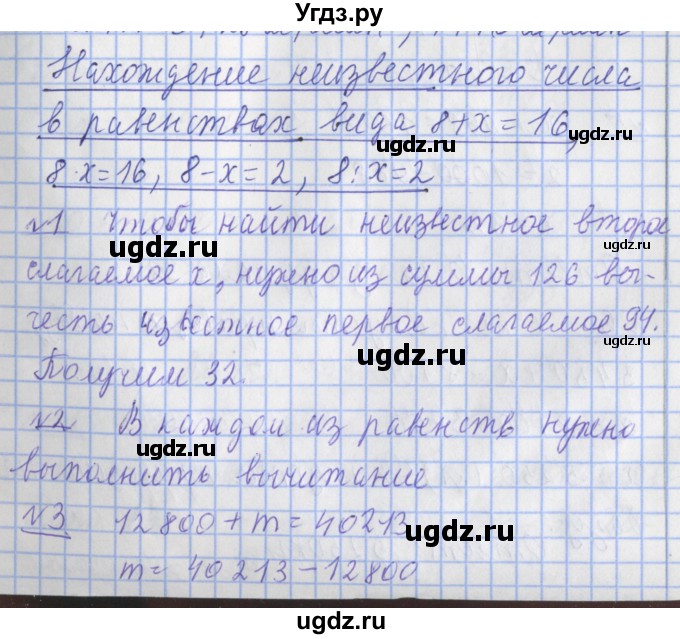 Угдз.ру
Нахождение неизвестного числа
в равенствах вида 8+x=16,
8·x=16, 8-x=2, 8:x=2
№1 Чтобы найти неизвестное второе
слагаемое x, нужно из суммы 126 вы-
честь известное первое слагаемое 94.
Получим 32.
№2 В каждом из равенств нужно
выполнить вычитание
№3 12800+m=40213
m=40213-12800
ugdz.ru
ugdz.ru
ugdz.ru
ugdz.ru
ugdz.ru
ugdz.ru
ugdz.ru
ugdz.ru
ugdz.ru
ugdz.ru